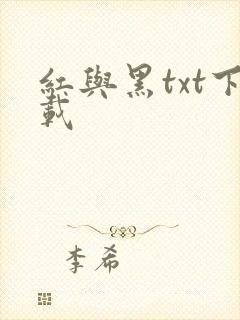 紅與黑txt下
載
李希